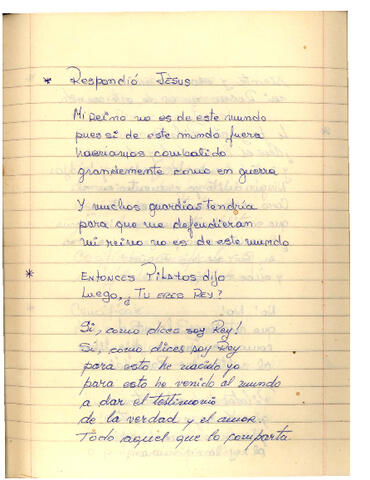 * Respondió Jesus
Mi reino no es de este mundo
pues si de este mundo fuera
habriamos combatido
grandemente como en guerra
Y muchos guardias tendria
para que me defendieran
mi reino no es de este mundo
* ENTONCES PILATOS dijo
Luego, ¿ TU ERES REY?
Si, como dices soy Rey!
Si, como dices soy Rey
para esto he nacido yo
para esto he venido al mundo
a dar el testimonio
de la verdad y el amor.
Todo aquel que lo comparta